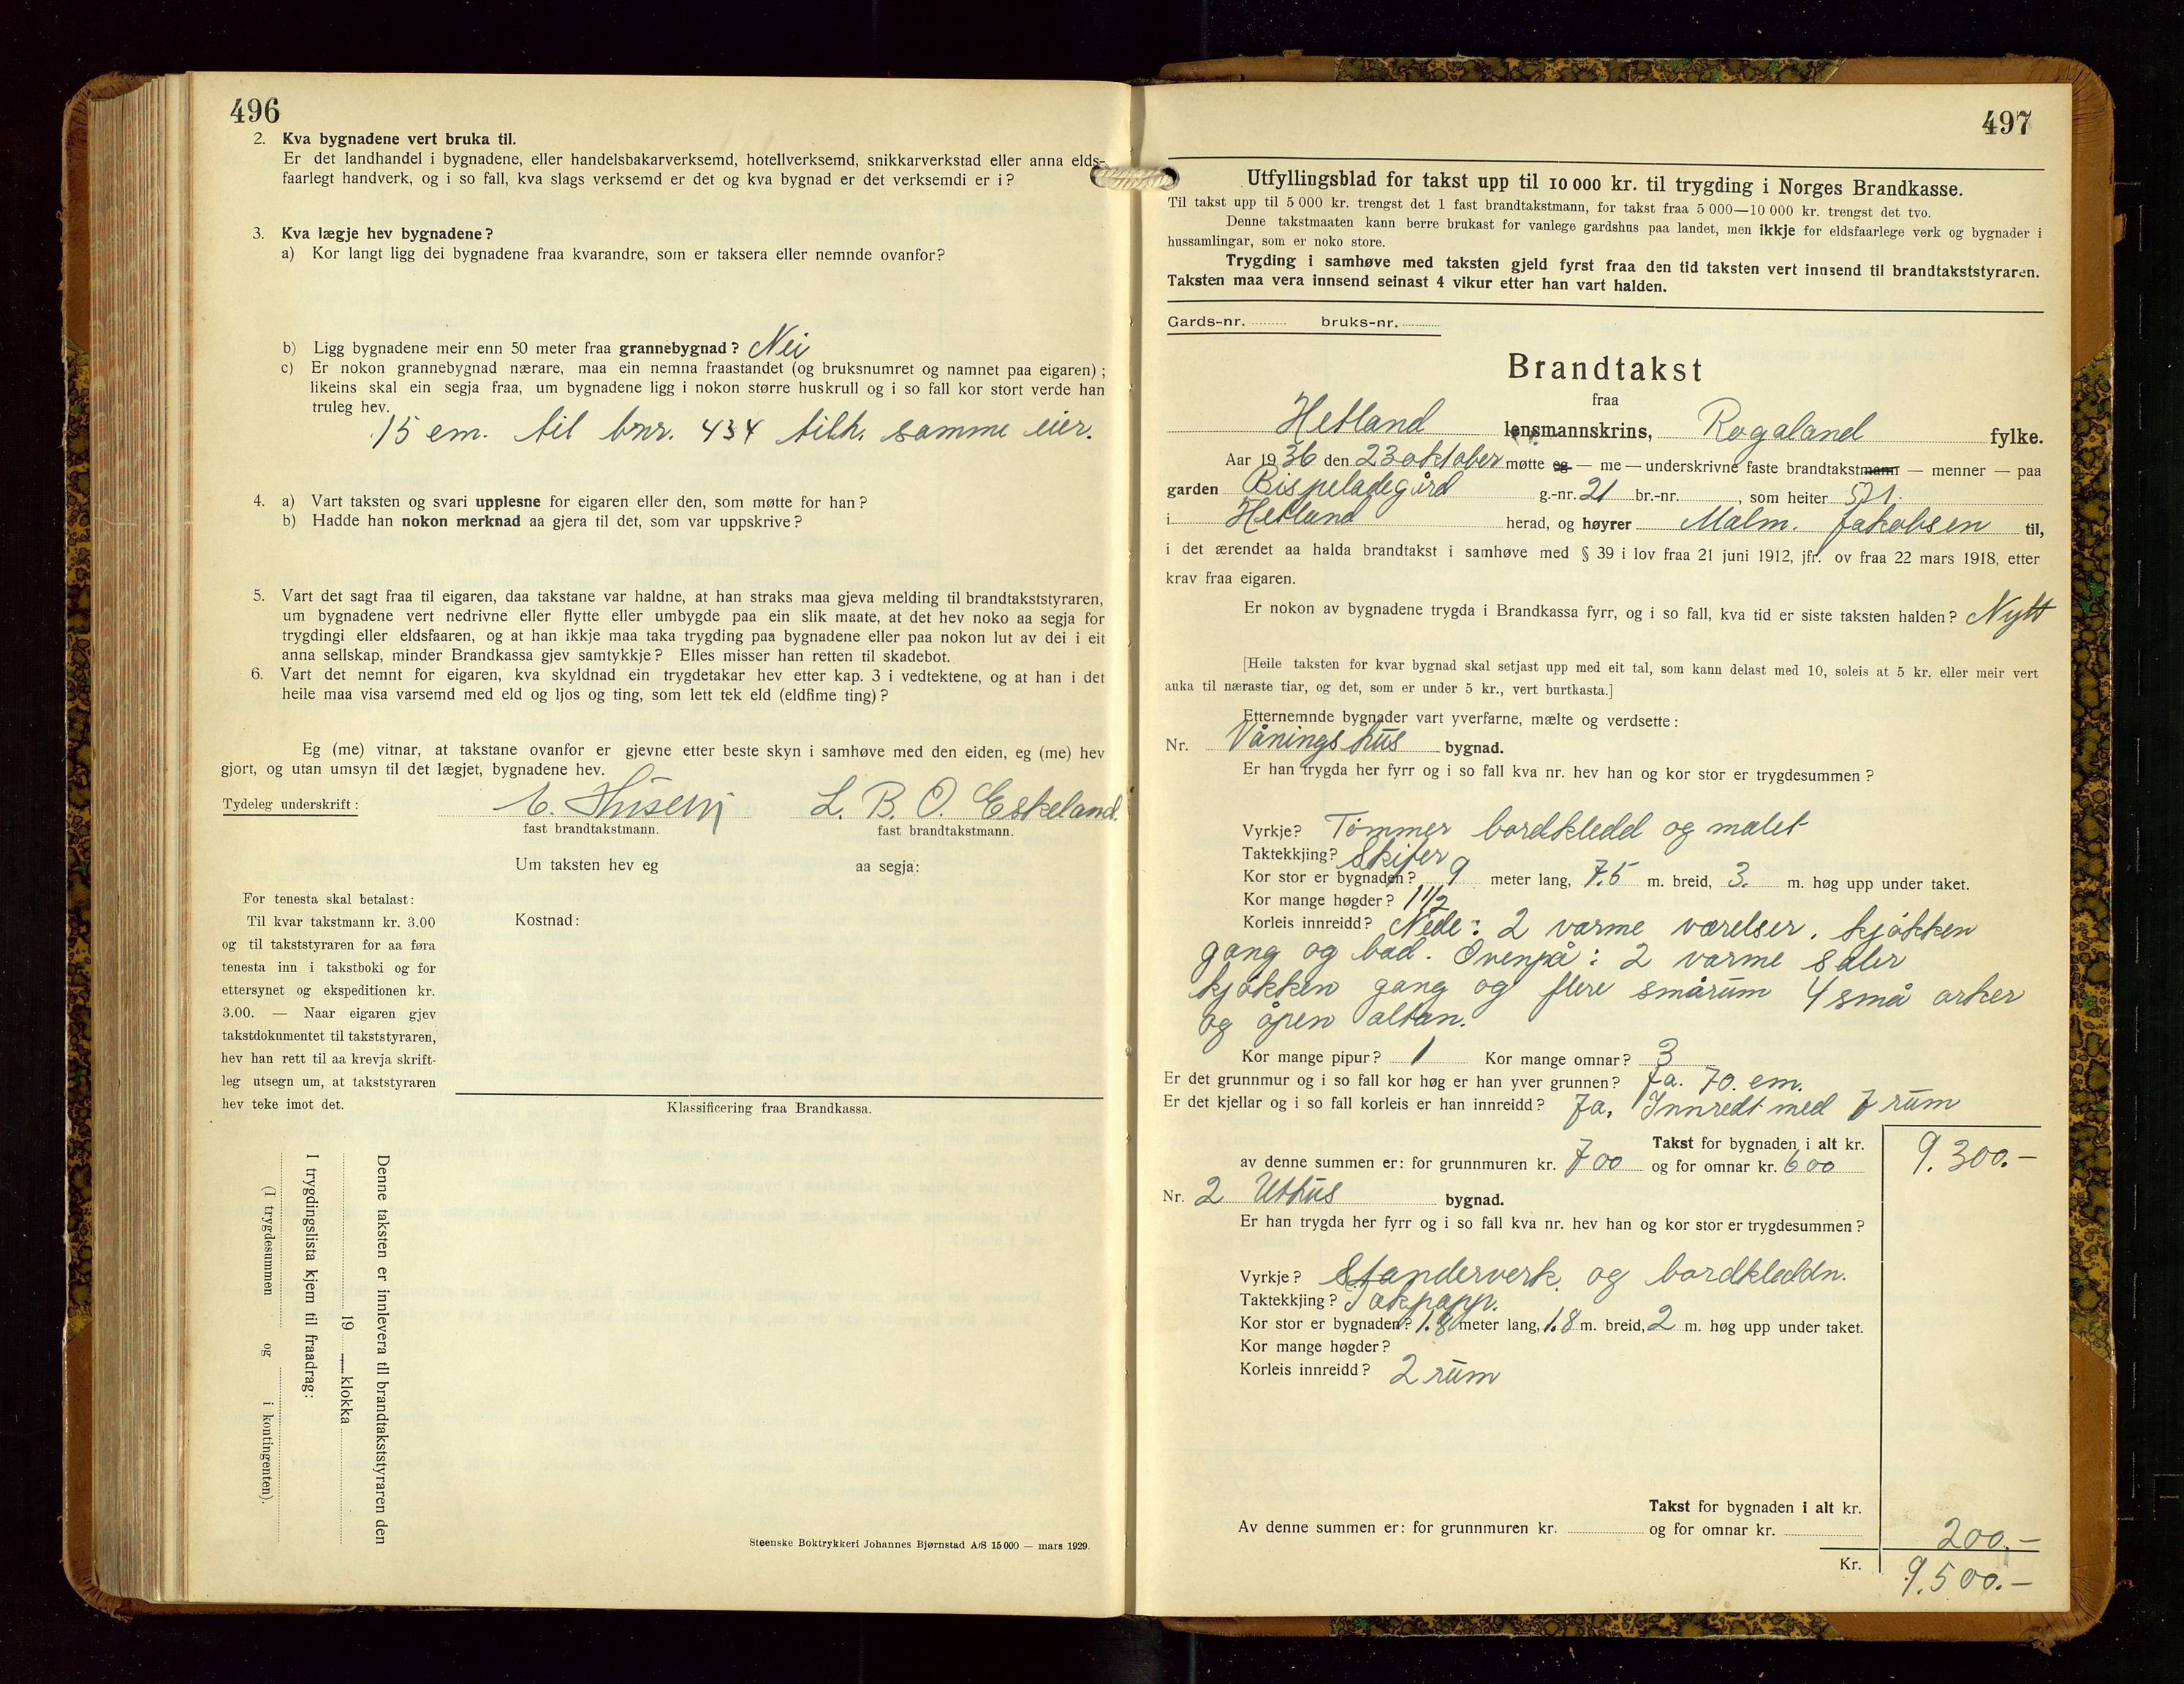 496
2. Kva bygnadene vert bruka til.
Er det landhandel i bygnadene, eller handelsbakarverksemd, hotellverksemd, snikkarverkstad eller anna elds-
faarlegt handverk, og i so fall, kva slags verksemd er det og kva bygnad er det verksemdi er i?
3. Kva lægje hev bygnadene?
a) Kor langt ligg dei bygnadene fraa kvarandre, som er taksera eller nemnde ovanfor?
b) Ligg bygnadene meir enn 50 meter fraa grannebygnad? Nei
c) Er nokon grannebygnad nærare, maa ein nemna fraastandet (og bruksnumret og namnet paa eigaren);
likeins skal ein segja fraa, um bygnadene ligg i nokon større huskrull og i so fall kor stort verde han
truleg hev.
15 em. til bnr. 434 tilh. samme eier.
4. a) Vart taksten og svari upplesne for eigaren eller den, som møtte for han?
b) Hadde han nokon merknad aa gjera til det, som var uppskrive?
5. Vart det sagt fraa til eigaren, daa takstane var haldne, at han straks maa gjeva melding til brandtakststyraren,
um bygnadene vert nedrivne eller flytte eller umbygde paa ein slik maate, at det hev noko aa segja for
trygdingi eller eldsfaaren, og at han ikkje maa taka trygding paa bygnadene eller paa nokon lut av dei i eit
anna sellskap, minder Brandkassa gjev samtykkje? Elles misser han retten til skadebot.
6. Vart det nemnt for eigaren, kva skyldnad ein trygdetakar hev etter kap. 3 i vedtektene, og at han i det
heile maa visa varsemd med eld og ljos og ting, som lett tek eld (eldfime ting)?
Eg (me) vitnar, at takstane ovanfor er gjevne etter beste skyn i samhøve med den eiden, eg (me) hev
gjort, og utan umsyn til det lægjet, bygnadene hev.
Tydeleg underskrift: L. B. O. Eskeland.
fast brandtakstmann. fast brandtakstmann.
Um taksten hev eg aa segja:
For tenesta skal betalast:
Til kvar takstmann kr. 3.00
og til takststyraren for aa føra
tenesta inn i takstboki og for
ettersynet og ekspeditionen kr.
3.00. — Naar eigaren gjev
takstdokumentet til takststyraren,
hev han rett til aa krevja skrift-
leg utsegn um, at takststyraren
hev teke imot det.
Kostnad:
Klassificering fraa Brandkassa.
Denne taksten er innlevera tll brandtakststyraren den
19 klokka
I trygdingslista kjem til fraadrag:
(I trygdesummen og i kontingenten).
Steenske Boktrykkeri Johannes Bjørnstad A/S 15 000 — mars 1929.
497
Utfyllingsblad for takst upp til 10 000 kr. til trygding i Norges Brandkasse.
Til takst upp til 5 000 kr. trengst det 1 fast brandtakstmann, for takst fraa 5 000—10 000 kr. trengst det tvo.
Denne takstmaaten kann berre brukast for vanlege gardshus paa landet, men ikkje for eldsfaarlege verk og bygnader i
hussamlingar, som er noko store.
Trygding i samhøve med taksten gjeld fyrst fraa den tid taksten vert innsend til brandtakststyraren.
Taksten maa vera innsend seinast 4 vikur etter han vart halden.
Gards-nr. bruks-nr.
Brandtakst
fraa
Hetland lensmannskrins, Rogaland fylke.
Aar 1936 den 23 oktober møtte eg — me — underskrivne faste brandtakstmann — menner — paa
garden Bispeladegård g.-nr. 21 br.-nr. , som heiter 521.
i Hetland herad, og høyrer Malm. Jakobsen til,
i det ærendet aa halda brandtakst i samhøve med § 39 i lov fraa 21 juni 1912, jfr. ov fraa 22 mars 1918, etter
krav fraa eigaren.
Er nokon av bygnadene trygda i Brandkassa fyrr, og i so fall, kva tid er siste taksten halden? Nytt
[Heile taksten for kvar bygnad skal setjast upp med eit tal, som kann delast med 10, soleis at 5 kr. eller meir vert
auka til næraste tiar, og det, som er under 5 kr., vert burtkasta.]
Etternemnde bygnader vart yverfarne, mælte og verdsette:
Nr. Vånings hus bygnad.
Er han trygda her fyrr og i so fall kva nr. hev han og kor stor er trygdesummen?
Vyrkje? Tømmer bordkledd og malet
Taktekkjing? Skifer
Kor stor er bygnaden? 9 meter lang, 7.5 m. breid, 3. m. høg upp under taket.
Kor mange høgder? 1 1/2
Korleis innreidd? Nede: 2 varme værelser. kjøkken
gang og bad. Ovenpå: 2 varme saler
kjøkken gang og flere smårum 4 små arker
og åpen altan.
Kor mange pipur? 1 Kor mange omnar? 3
Er det grunnmur og i so fall kor høg er han yver grunnen? Ja. 70. em.
Er det kjellar og i so fall korleis er han innreidd? Ja, Innredt med 7 rum
Takst for bygnaden i alt kr.
av denne summen er: for grunnmuren kr. 700 og for omnar kr. 600 9.300.—
Nr. 2 Uthus bygnad.
Er han trygda her fyrr og i so fall kva nr. hev han og kor stor er trygdesummen?
Vyrkje? Standerverk og bordkleddn.
Taktekkjing? Takpapp.
Kor stor er bygnaden? 1.8 meter lang, 1.8 m. breid, 2 m. høg upp under taket.
Kor mange høgder?
Korleis innreidd? 2 rum
Takst for bygnaden i alt kr.
Av denne summen er: for grunnmuren kr. og for omnar kr. 200.—
Kr. 9.500.—